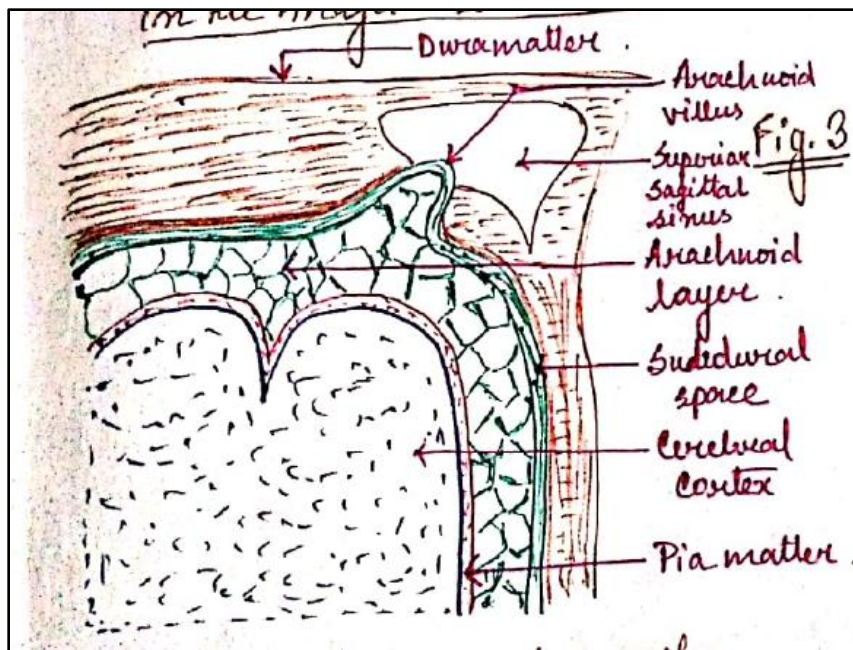 Duramatter .
Arachnoid
villus
Fig. 3
Superior
sagittal
sinus
Arachnoid
layer .
Subdural
space
Cerebral
Cortex
Pia matter .